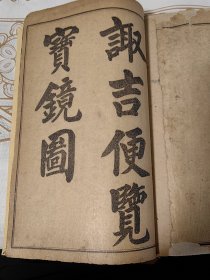 諏吉便覽
寳鏡圖